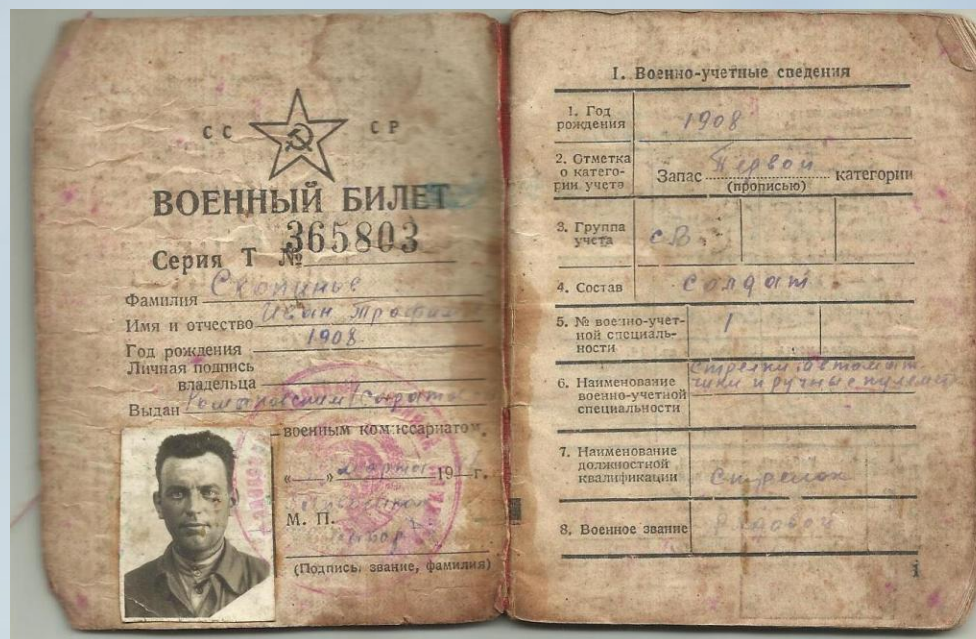 СС СР
ВОЕННЫЙ БИЛЕТ
Серия Т № 365803
Фамилия
Имя и отчество Иван
Год рождения 1908
Личная подпись
владельца
Выдан
военным комиссариатом
« » марта 19 г.
М. П.
(Подпись, звание, фамилия)
I. Военно-учетные сведения
1. Год
рождения 1908
2. Отметка
о катего-
рии учета Запас Первой категории
(прописью)
3. Группа
учета СВ.
4. Состав солдат
5. № военно-учет-
ной специаль-
ности 1
6. Наименование
военно-учетной
специальности стрелки автомат
чики и ручные пулем
7. Наименование
должностной
квалификации Стрелок
8. Военное звание Рядовой
1